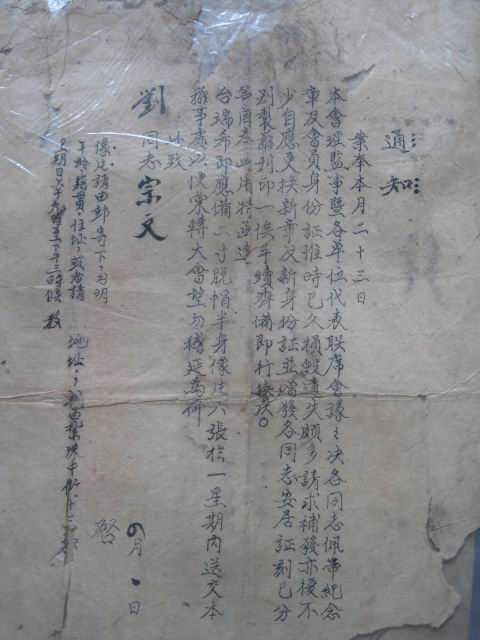 通知
案奉本月二十三日
本會理監事暨各單位代表联席會議之决各同志佩帶紀念
章及會員身份証推時已久損毀遺失頗多請求補發亦復不
少自應更换新章及新身份証並增發各同志安居証刻已分
别製就刊印一俟手續齊備即行
台端希即應備二寸脱帽半身像片六張於一星期内送交本
辦事處以便彙轉大會幸勿稽延為荷
此致
劉同志宗文
像片請由郵寄下
年齡籍貫住址
地址
啓 月 日